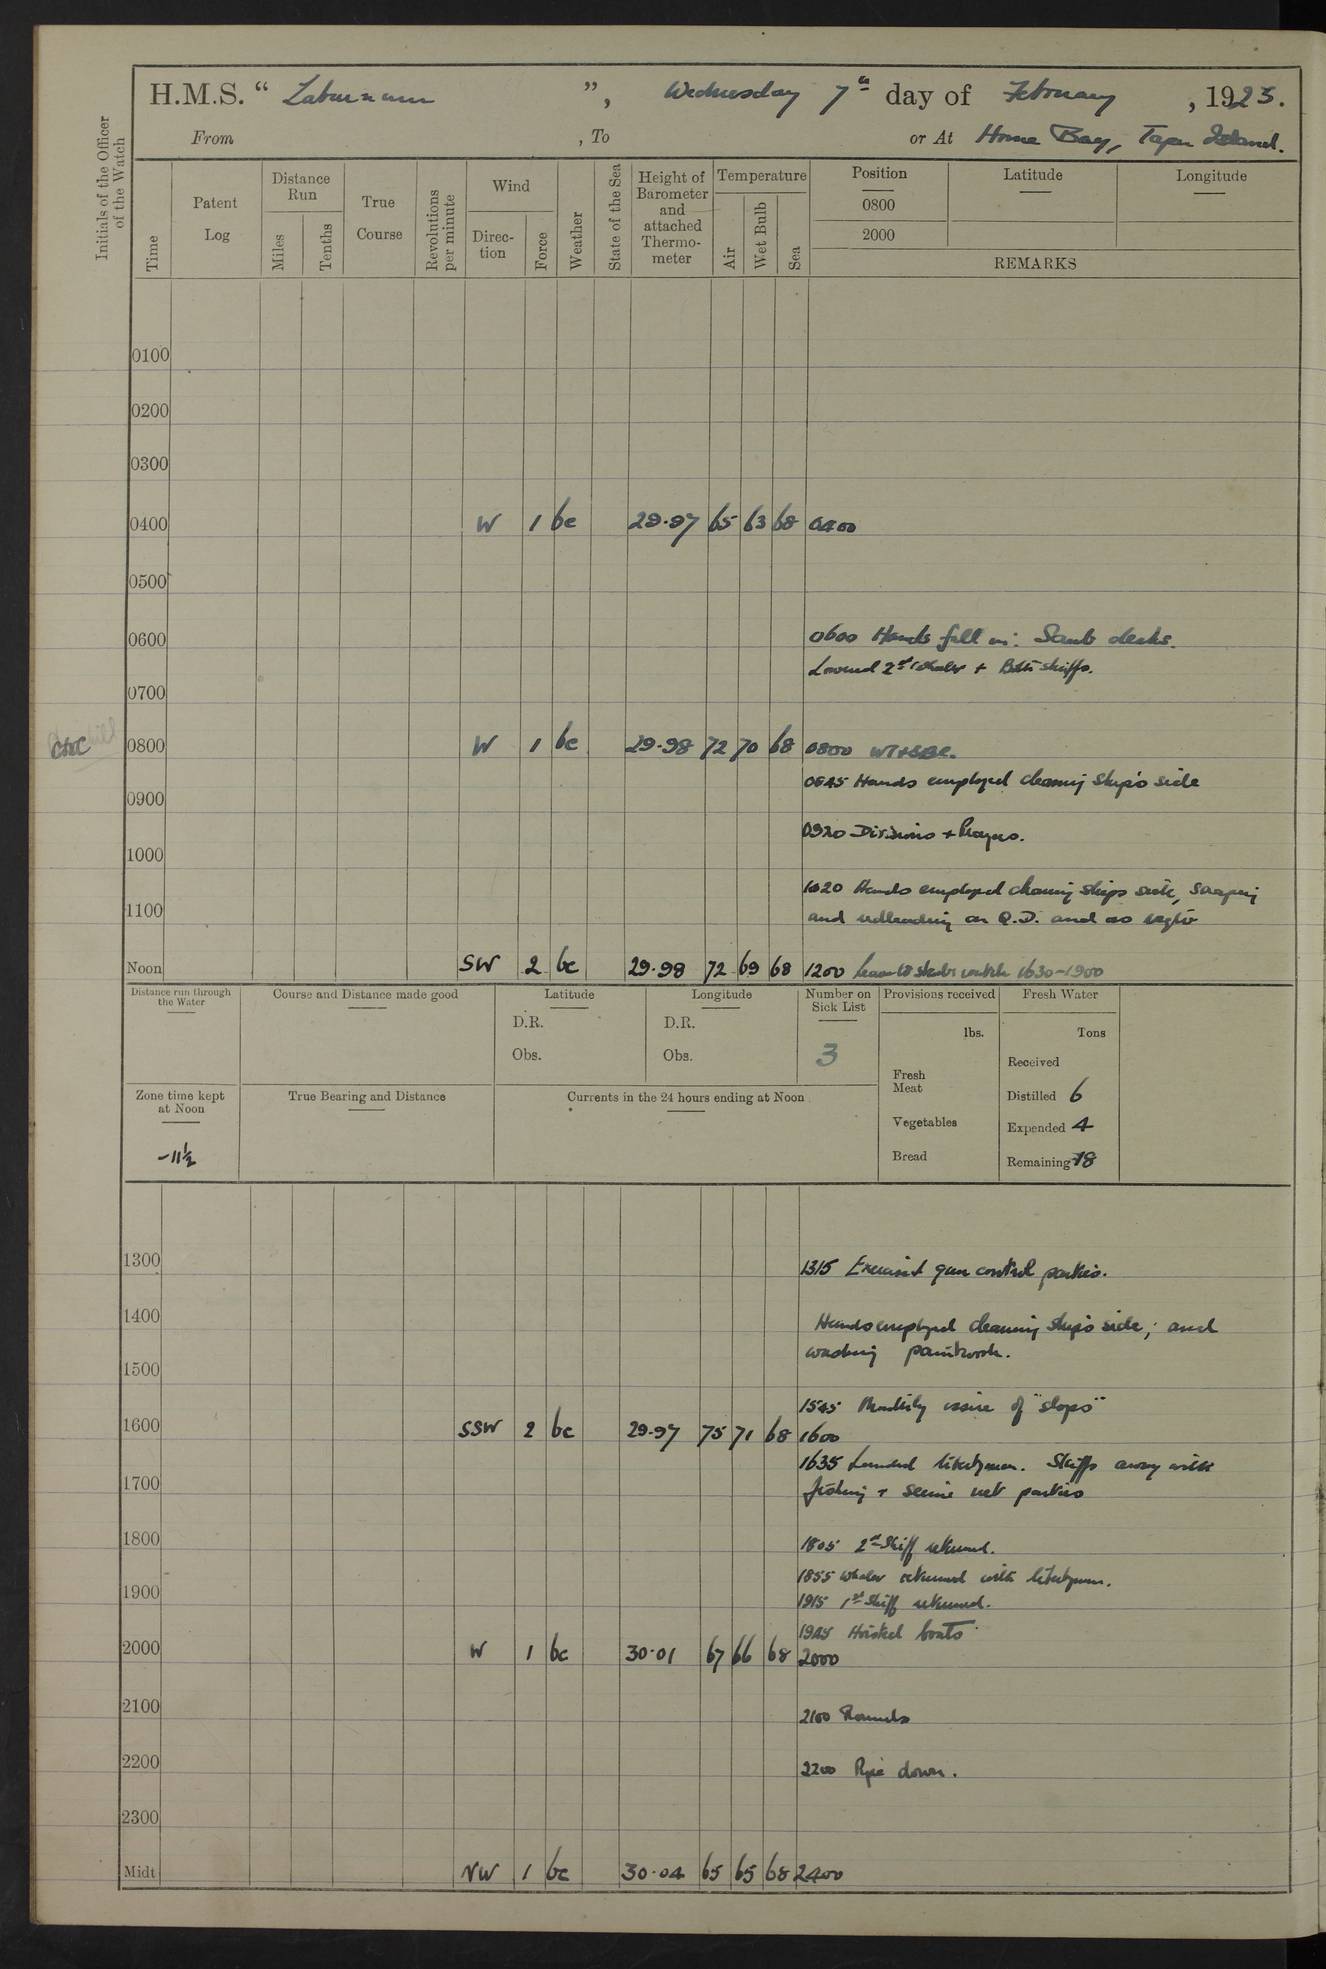 H.M.S. “ Laburnum ”, Wednesday 7th day of February, 1923.
From , To or At Home Bay, Island.
Initials of the Officer of the Watch
Time
Patent Log
Distance Run
Miles
Tenths
True Course
Revolutions per minute
Wind
Direc-tion
Force
Weather
State of the Sea
Height of Barometer and attached Thermo-meter
Temperature
Air
Wet Bulb
Sea
Position
0800
2000
Latitude
Longitude
REMARKS
0100
0200
0300
0400 W 1 bc 29.97 65 63 68 0400
0500
0600 0600 Hands fell in. Scrub decks.
Lowered 2nd whaler + Both skiffs.
0700
0800 W 1 bc 29.98 72 70 68 0800
0845 Hands employed cleaning ship's side
0900
0920 Divisions + Prayers.
1000
1020 Hands employed cleaning ships side, scraping
1100 and redleading on Q.D. and as reqte
Noon SW 2 bc 29.98 72 69 68 1200 Leave to watch 1630-1900
Distance run through the Water
Course and Distance made good
Latitude
D.R.
Obs.
Longitude
D.R.
Obs.
Number on Sick List
3
Provisions received
lbs.
Fresh Meat
Vegetables
Bread
Fresh Water
Tons
Received
Distilled 6
Expended 4
Remaining 18
Zone time kept at Noon
-11½
True Bearing and Distance
Currents in the 24 hours ending at Noon
1300 1315 Exercised gun control parties.
1400 Hands employed cleaning ship's side; and
washing paintwork.
1500
1545 Monthly issue of "slops"
1600 SSW 2 bc 29.97 75 71 68 1600
1635 Landed libertymen. Skiffs away with
1700 fishing + seine net parties
1800 1805 2nd Skiff returned.
1855 Whaler returned with libertymen.
1900 1915 1st Skiff returned.
1945 Hoisted boats
2000 W 1 bc 30.01 67 66 68 2000
2100 2100 Rounds
2200 2200 Pipe down.
2300
Midt NW 1 bc 30.04 65 65 68 2400